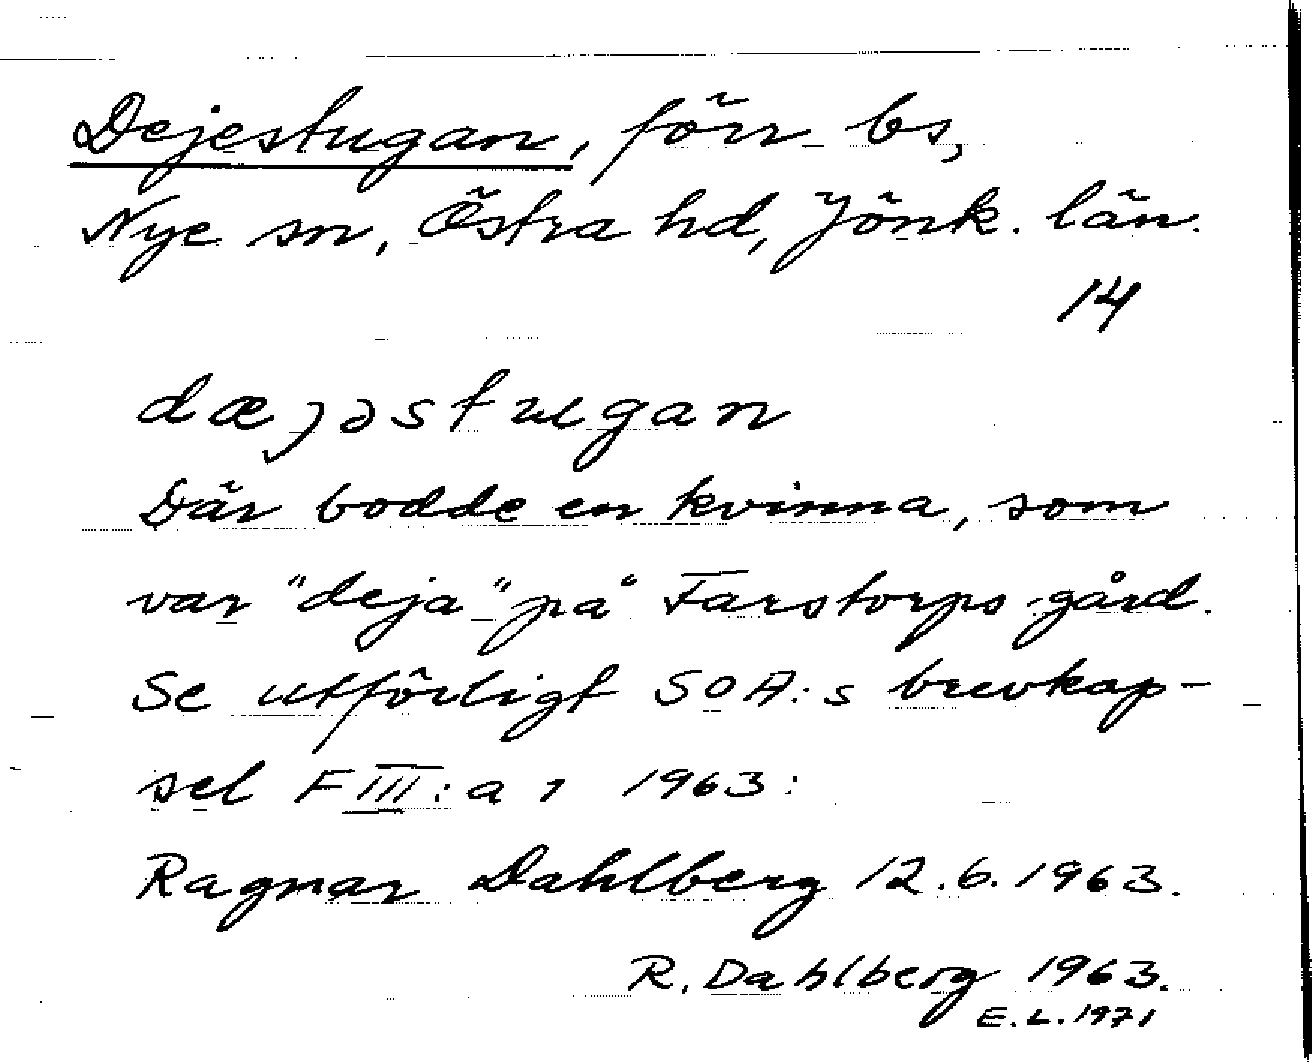 Dejestugan, förr bs,
Nye sn, Östra hd, Jönk. län.
14
dæjəstugan
Där bodde en kvinna, som
var "deja" på Farstorps gård.
Se utförligt SOA:s brevkap-
sel F III:a 1 1963:
Ragnar Dahlberg 12.6.1963.
R. Dahlberg 1963.
E.L. 1971